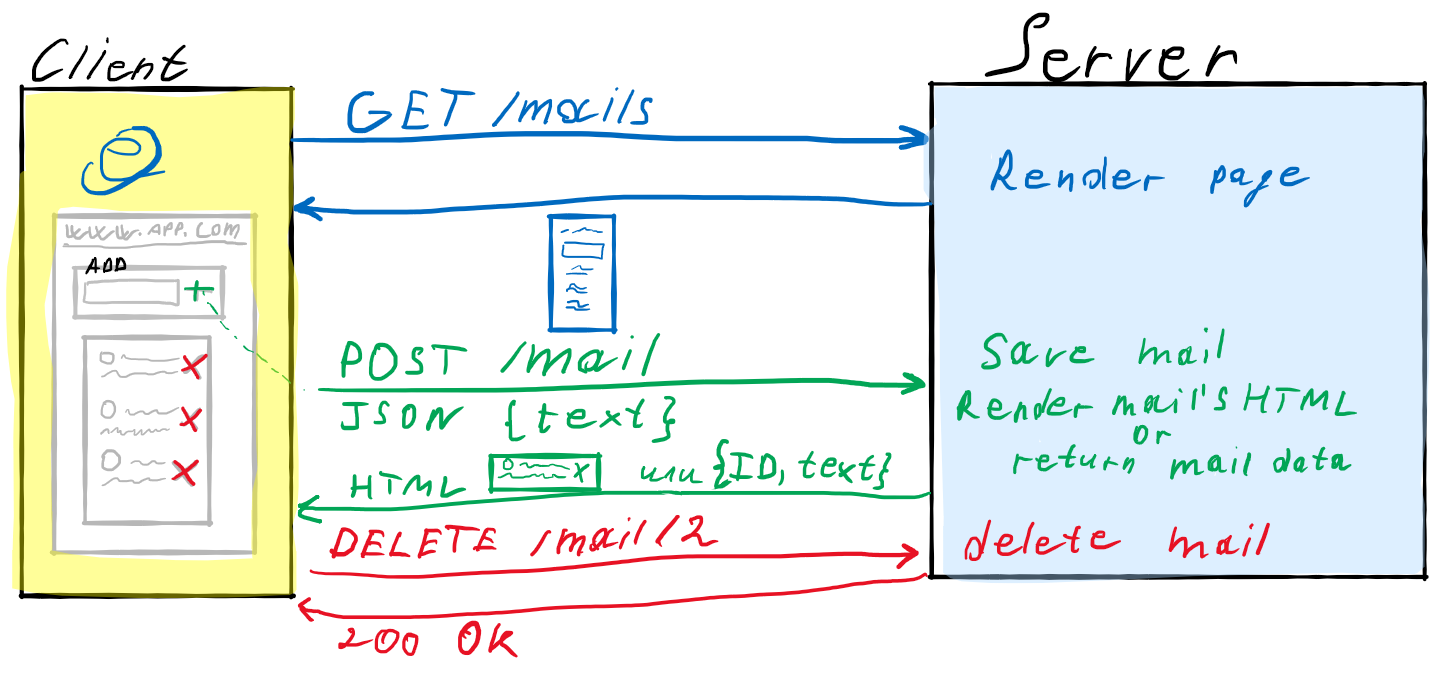 Client
Server
GET /mails
Render page
www.APP.COM
ADD
+
POST /mail
JSON {text}
Save mail
Render mail's HTML
or
return mail data
HTML
или {ID, text}
DELETE /mail/2
delete mail
200 OK